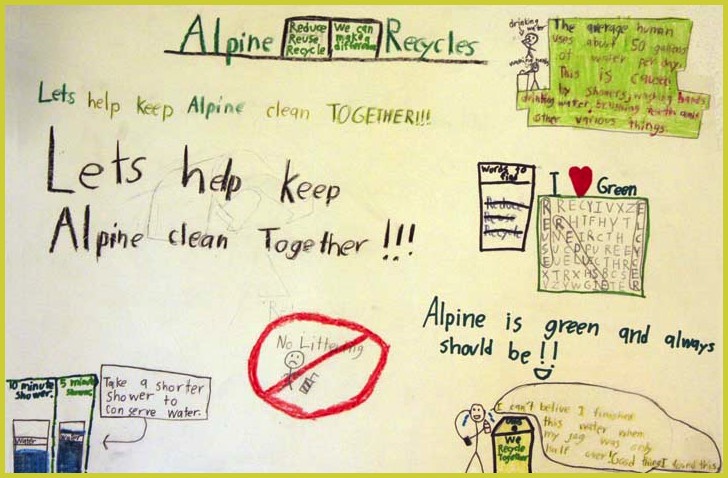 Alpine
Reduce
Reuse
Recycle
We can
make a
difference
Recycles
drinking
water
washing hands
The average human
uses about 50 gallons
of water per day.
This is caused
by showers, washing hands
drinking water, brushing teeth and
other various things.
Lets help keep Alpine clean TOGETHER!!!
Lets help keep
Alpine clean Together !!!
Words to
find
Reduce
Reuse
Recycle
I Green
No Littering
Alpine is green and always
should be!!
10 minute
shower.
5 minute
shower
water
water
Take a shorter
shower to
conserve water.
I can't belive I finished
this water when
my jog was only
half over! Good thing I found this
We
Recycle
Together